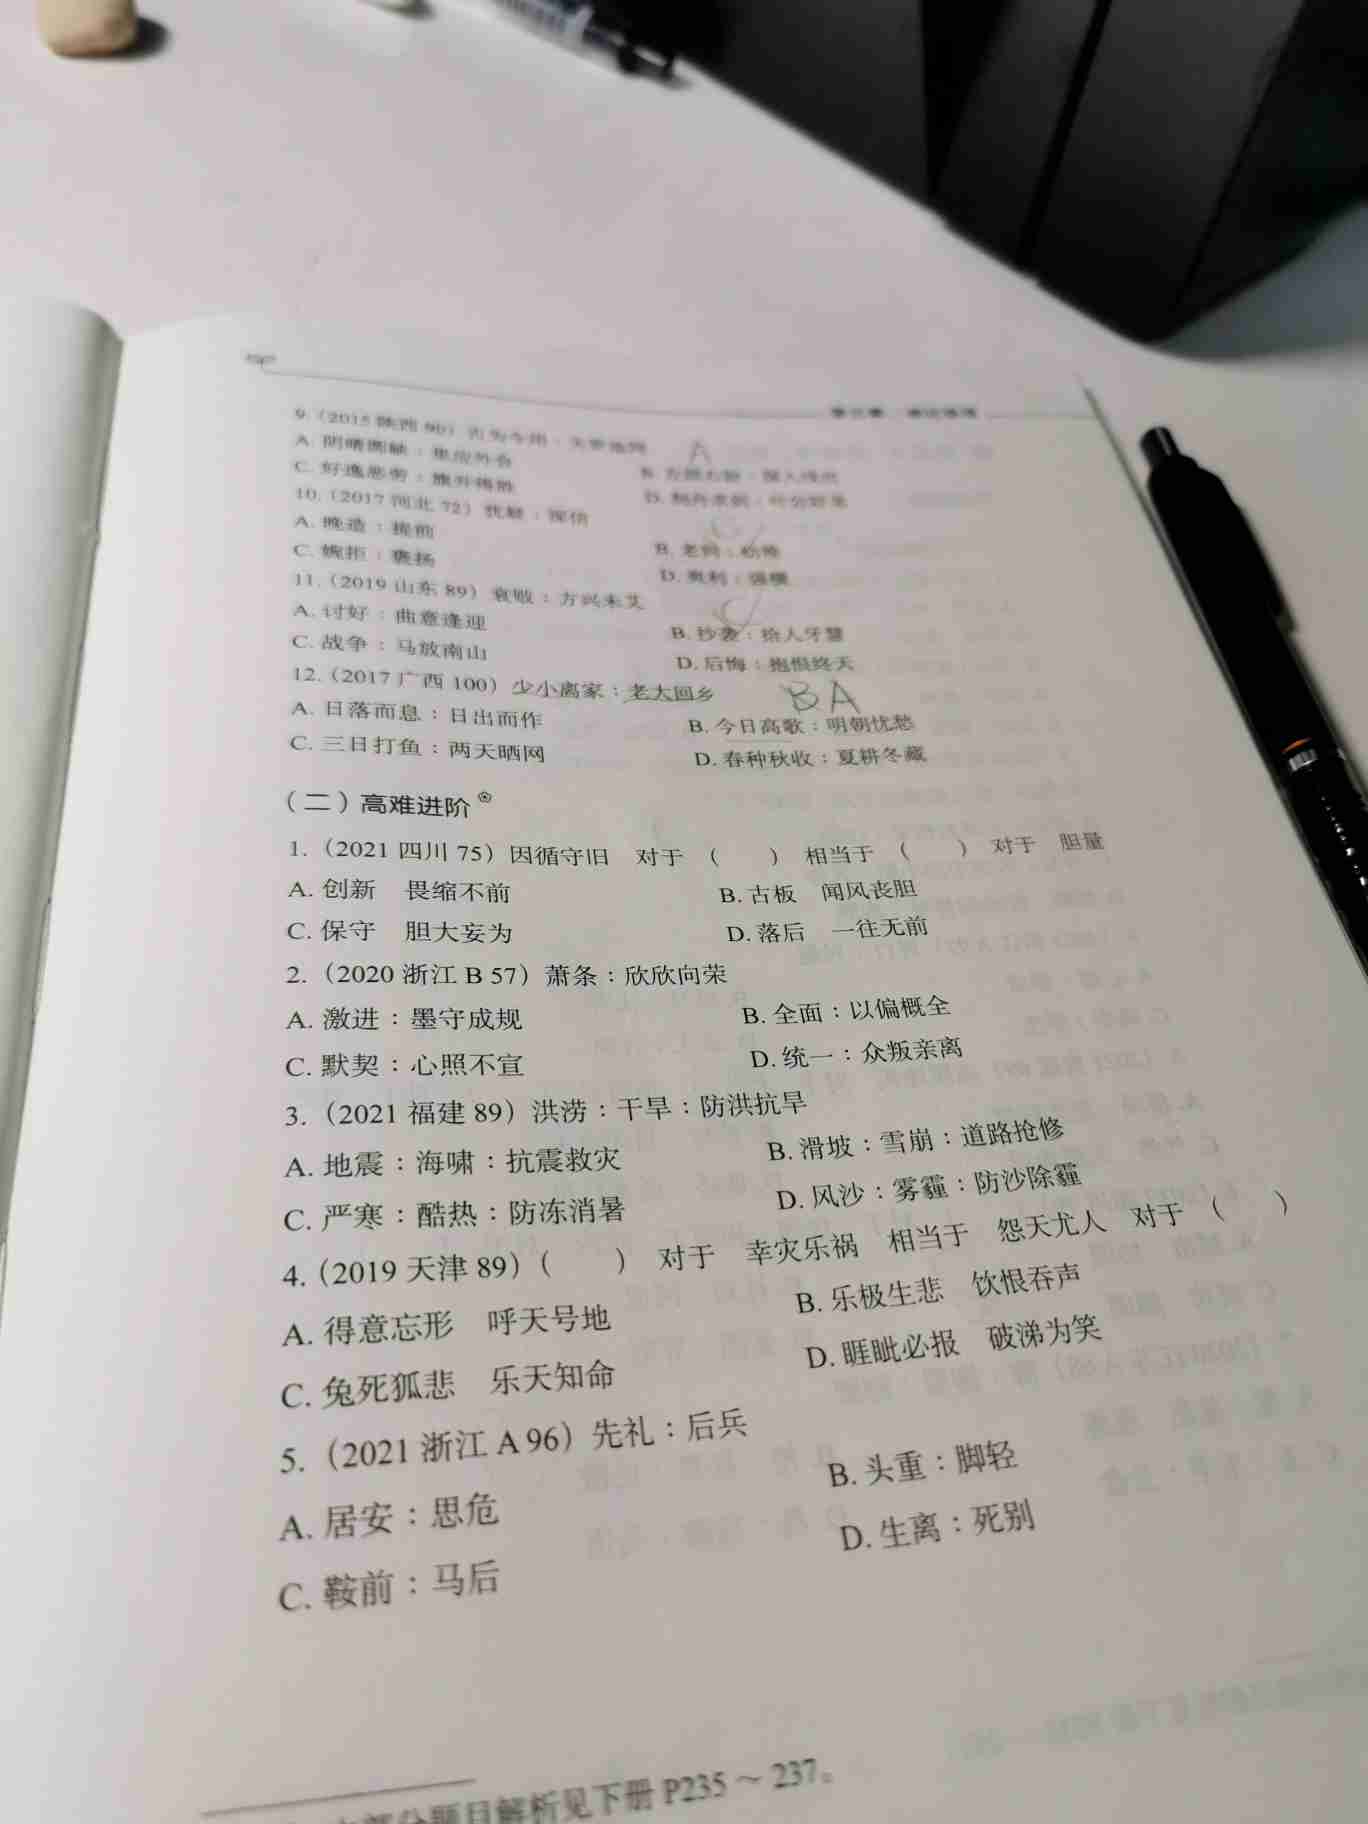 9.（2015 陕西 90）古为今用：失密泄网 A
A. 阴晴圆缺：里应外合
C. 好逸恶劳：旗开得胜
10.（2017 河北 72）
A. 晚造：提前
B. 老到：
C. 婉拒：褒扬
D. 爽利：强横
11.（2019 山东 89）衰败：方兴未艾 C
A. 讨好：曲意逢迎
B. 抄袭：拾人牙慧
C. 战争：马放南山
D. 后悔：抱恨终天
12.（2017 广西 100）少小离家：老大回乡 B A
A. 日落而息：日出而作
B. 今日高歌：明朝忧愁
C. 三日打鱼：两天晒网
D. 春种秋收：夏耕冬藏
（二）高难进阶
1.（2021 四川 75）因循守旧 对于（ ）相当于（ ）对于 胆量
A. 创新 畏缩不前
B. 古板 闻风丧胆
C. 保守 胆大妄为
D. 落后 一往无前
2.（2020 浙江 B 57）萧条：欣欣向荣
A. 激进：墨守成规
B. 全面：以偏概全
C. 默契：心照不宣
D. 统一：众叛亲离
3.（2021 福建 89）洪涝：干旱：防洪抗旱
A. 地震：海啸：抗震救灾
B. 滑坡：雪崩：道路抢修
C. 严寒：酷热：防冻消暑
D. 风沙：雾霾：防沙除霾
4.（2019 天津 89）（ ）对于 幸灾乐祸 相当于 怨天尤人 对于（ ）
A. 得意忘形 呼天号地
B. 乐极生悲 饮恨吞声
C. 兔死狐悲 乐天知命
D. 睚眦必报 破涕为笑
5.（2021 浙江 A 96）先礼：后兵
A. 居安：思危
B. 头重：脚轻
C. 鞍前：马后
D. 生离：死别
部分题目解析见下册 P235～237。